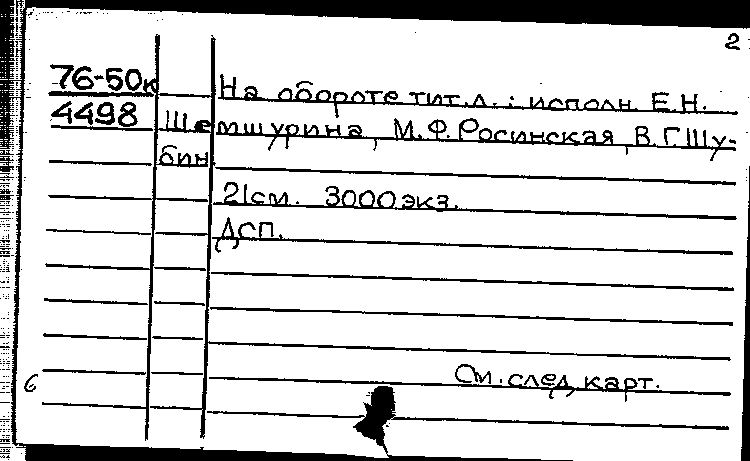 2
76-50к На обороте тит.л.: исполн. Е.Н.
4498 Шемшурина, М.Ф.Росинская, В.Г.Шу-
бин
21см. 3000экз.
ДСП.
См. след. карт.
6